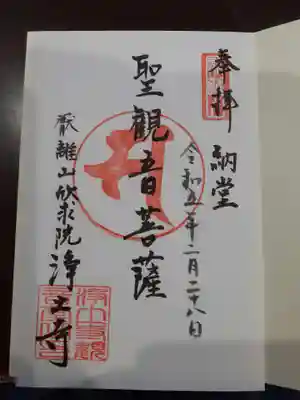 奉拝 納堂
令和五年二月二十八日
聖観音菩薩
厭離山欣求院浄土寺